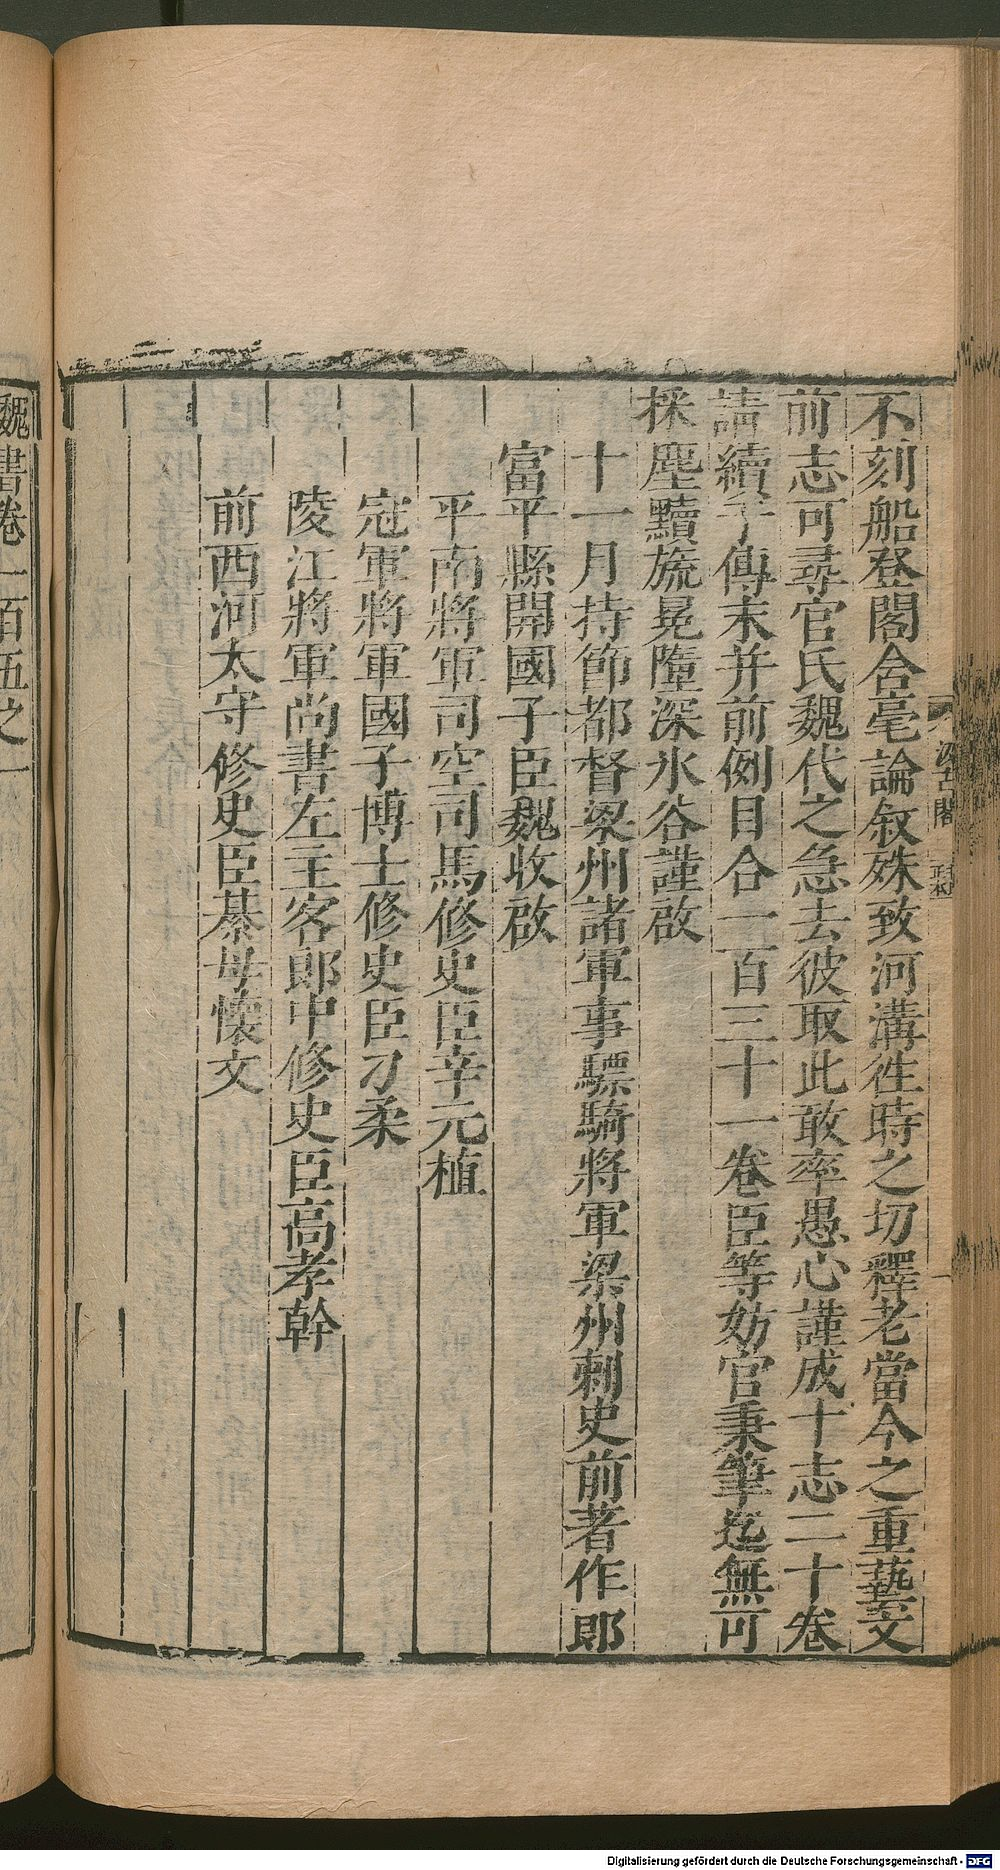 不刻船登閣含毫論叙殊致河溝徃時之切釋老當今之重藝文
前志可尋官氏魏代之急去彼取此敢率愚心謹成十志二十卷
請續于傳末并前例目合一百三十一卷臣等妨官秉筆迄無可
採塵黷旒冕墮深氷谷謹啟
十一月持節都督梁州諸軍事驃騎將軍梁州刺史前著作郎
富平縣開國子臣魏收啟
平南將軍司空司馬修史臣辛元植
冦軍將軍國子博士修史臣刁柔
陵江將軍尚書左主客郎中修史臣高孝幹
前西河太守修史臣綦毋懷文
汲古閣
魏書卷一百五之一
Digitalisierung gefördert durch die Deutsche Forschungsgemeinschaft - DFG